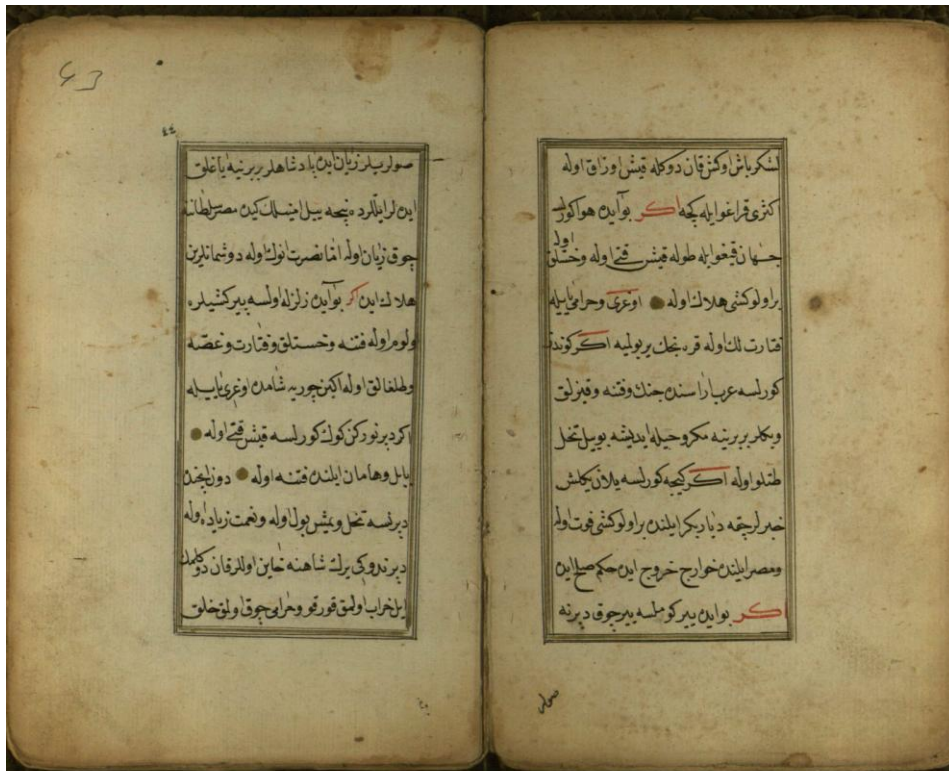 لشكر باش اوكش قان دوكله قيش اوزاق اوله
كثرى قراغوايله كچه اكر بوآيده هواكورلسه
اوله
جهان قيغوايله طوله قيش قتى اوله وخستلق
براولوكشى هلاك اوله اوغرى وحرامى ياييله
قتارت لك اوله قره نجك يريولميه اكر كوندز
كورلسه عرب اراسنده جنك وفتنه وقيزلق
وبكلر بربرينه مكر وحيله انديشه بوييل تخل
طتلو اوله اكر كيجه كورلسه يلان يكلش
خبرلر چقه دياربكر ايلنده براولوكشى فوت اوله
ومصر ايلنده خوارج خروج ايده حكم صلح ايده
اكر بوآيده يير كوملسه يير چوق دپرنه
صولر
٤٤
صولر ييلر زيان ايده پادشاهلر بربرينه ياغلق
ايده لر ايللرده نيجه ييل اينسلك كيده مصر سلطاننه
چوق زيان اوله امّا نصرت انوك اوله دوشمانلرين
هلاك ايده اكر بوآيده زلزله اولسه يير كشيلره
اولوم اوله فتنه وخستلق وقتارت وغصّه
وطلغالق اوله اكين چوريه شامده اوغرى ياييله
اكر دپرنوركن كوك كورلسه قيش قتى اوله
بابل وهامان ايلنده فتنه اوله دون ايچنده
دپرنسه تخل ويمش بول اوله ونعمت زياده اوله
دپرندوكى يرك شاهنه خاين اوللر قان دوكلمك
ايل خراب اولمق قورقو وحرامى چوق اولمق خلق